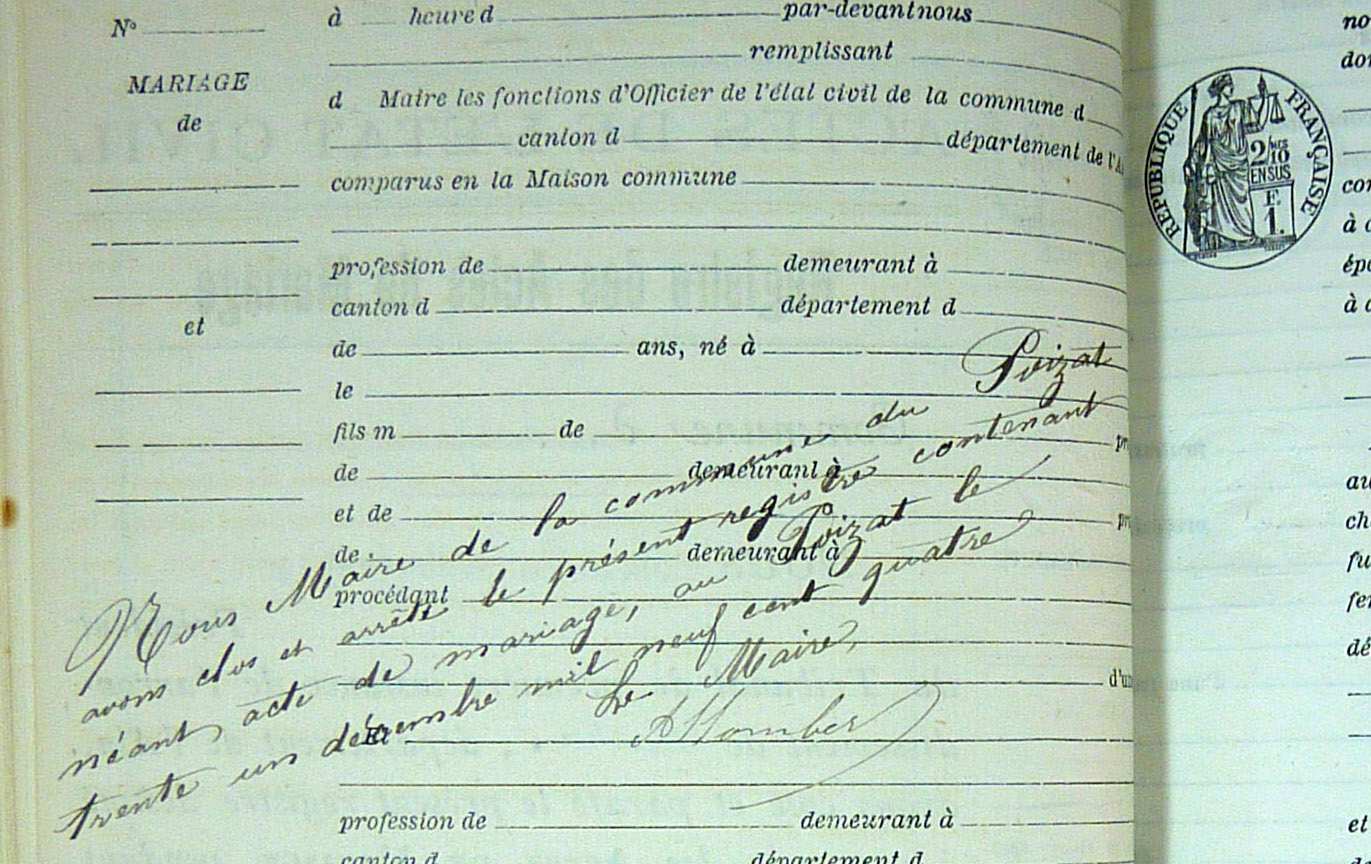 N°
MARIAGE
de
et
à heure d par-devant nous
remplissant
d Maire les fonctions d'Officier de l'état civil de la commune d
canton d département de l'A
comparus en la Maison commune
profession de demeurant à
canton d département d
de ans, né à
le
fils m de
de demeurant à
et de
de demeurant à
procédant
d'un
Et
profession de demeurant à
canton d département d
Nous Maire de la commune du Poizat
avons clos et arrêté le présent registre contenant
néant acte de mariage, au Poizat le
trente un décembre mil neuf cent quatre
Le Maire,
RÉPUBLIQUE FRANÇAISE
2/10
EN SUS
F.
1.
no
don
con
à d
épo
à d
au
ch
fu
fer
dé
et